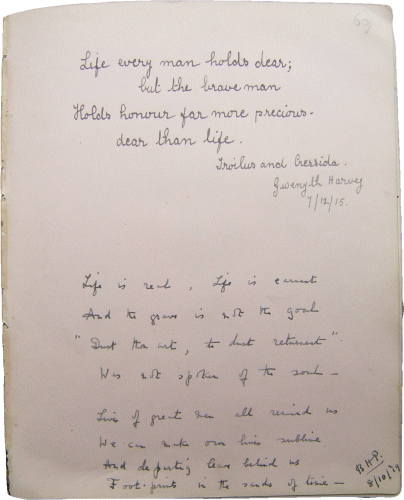 63
Life every man holds dear;
but the brave man
Holds honour far more precious-
dear than life.
Troilus and Cressida.
Gwenyth Harvey
7/12/15.
Life is real, Life is earnest
And the grave is not the goal
"Dust thou art, to dust returnest".
Was not spoken of the soul —
Lives of great men all remind us
We can make our lives sublime
And departing leave behind us
Foot-prints in the sands of time —
B.H.P.
8/10/19